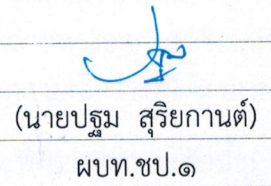 (นายปฐม สุริยกานต์)
ผบท.ชป.๑